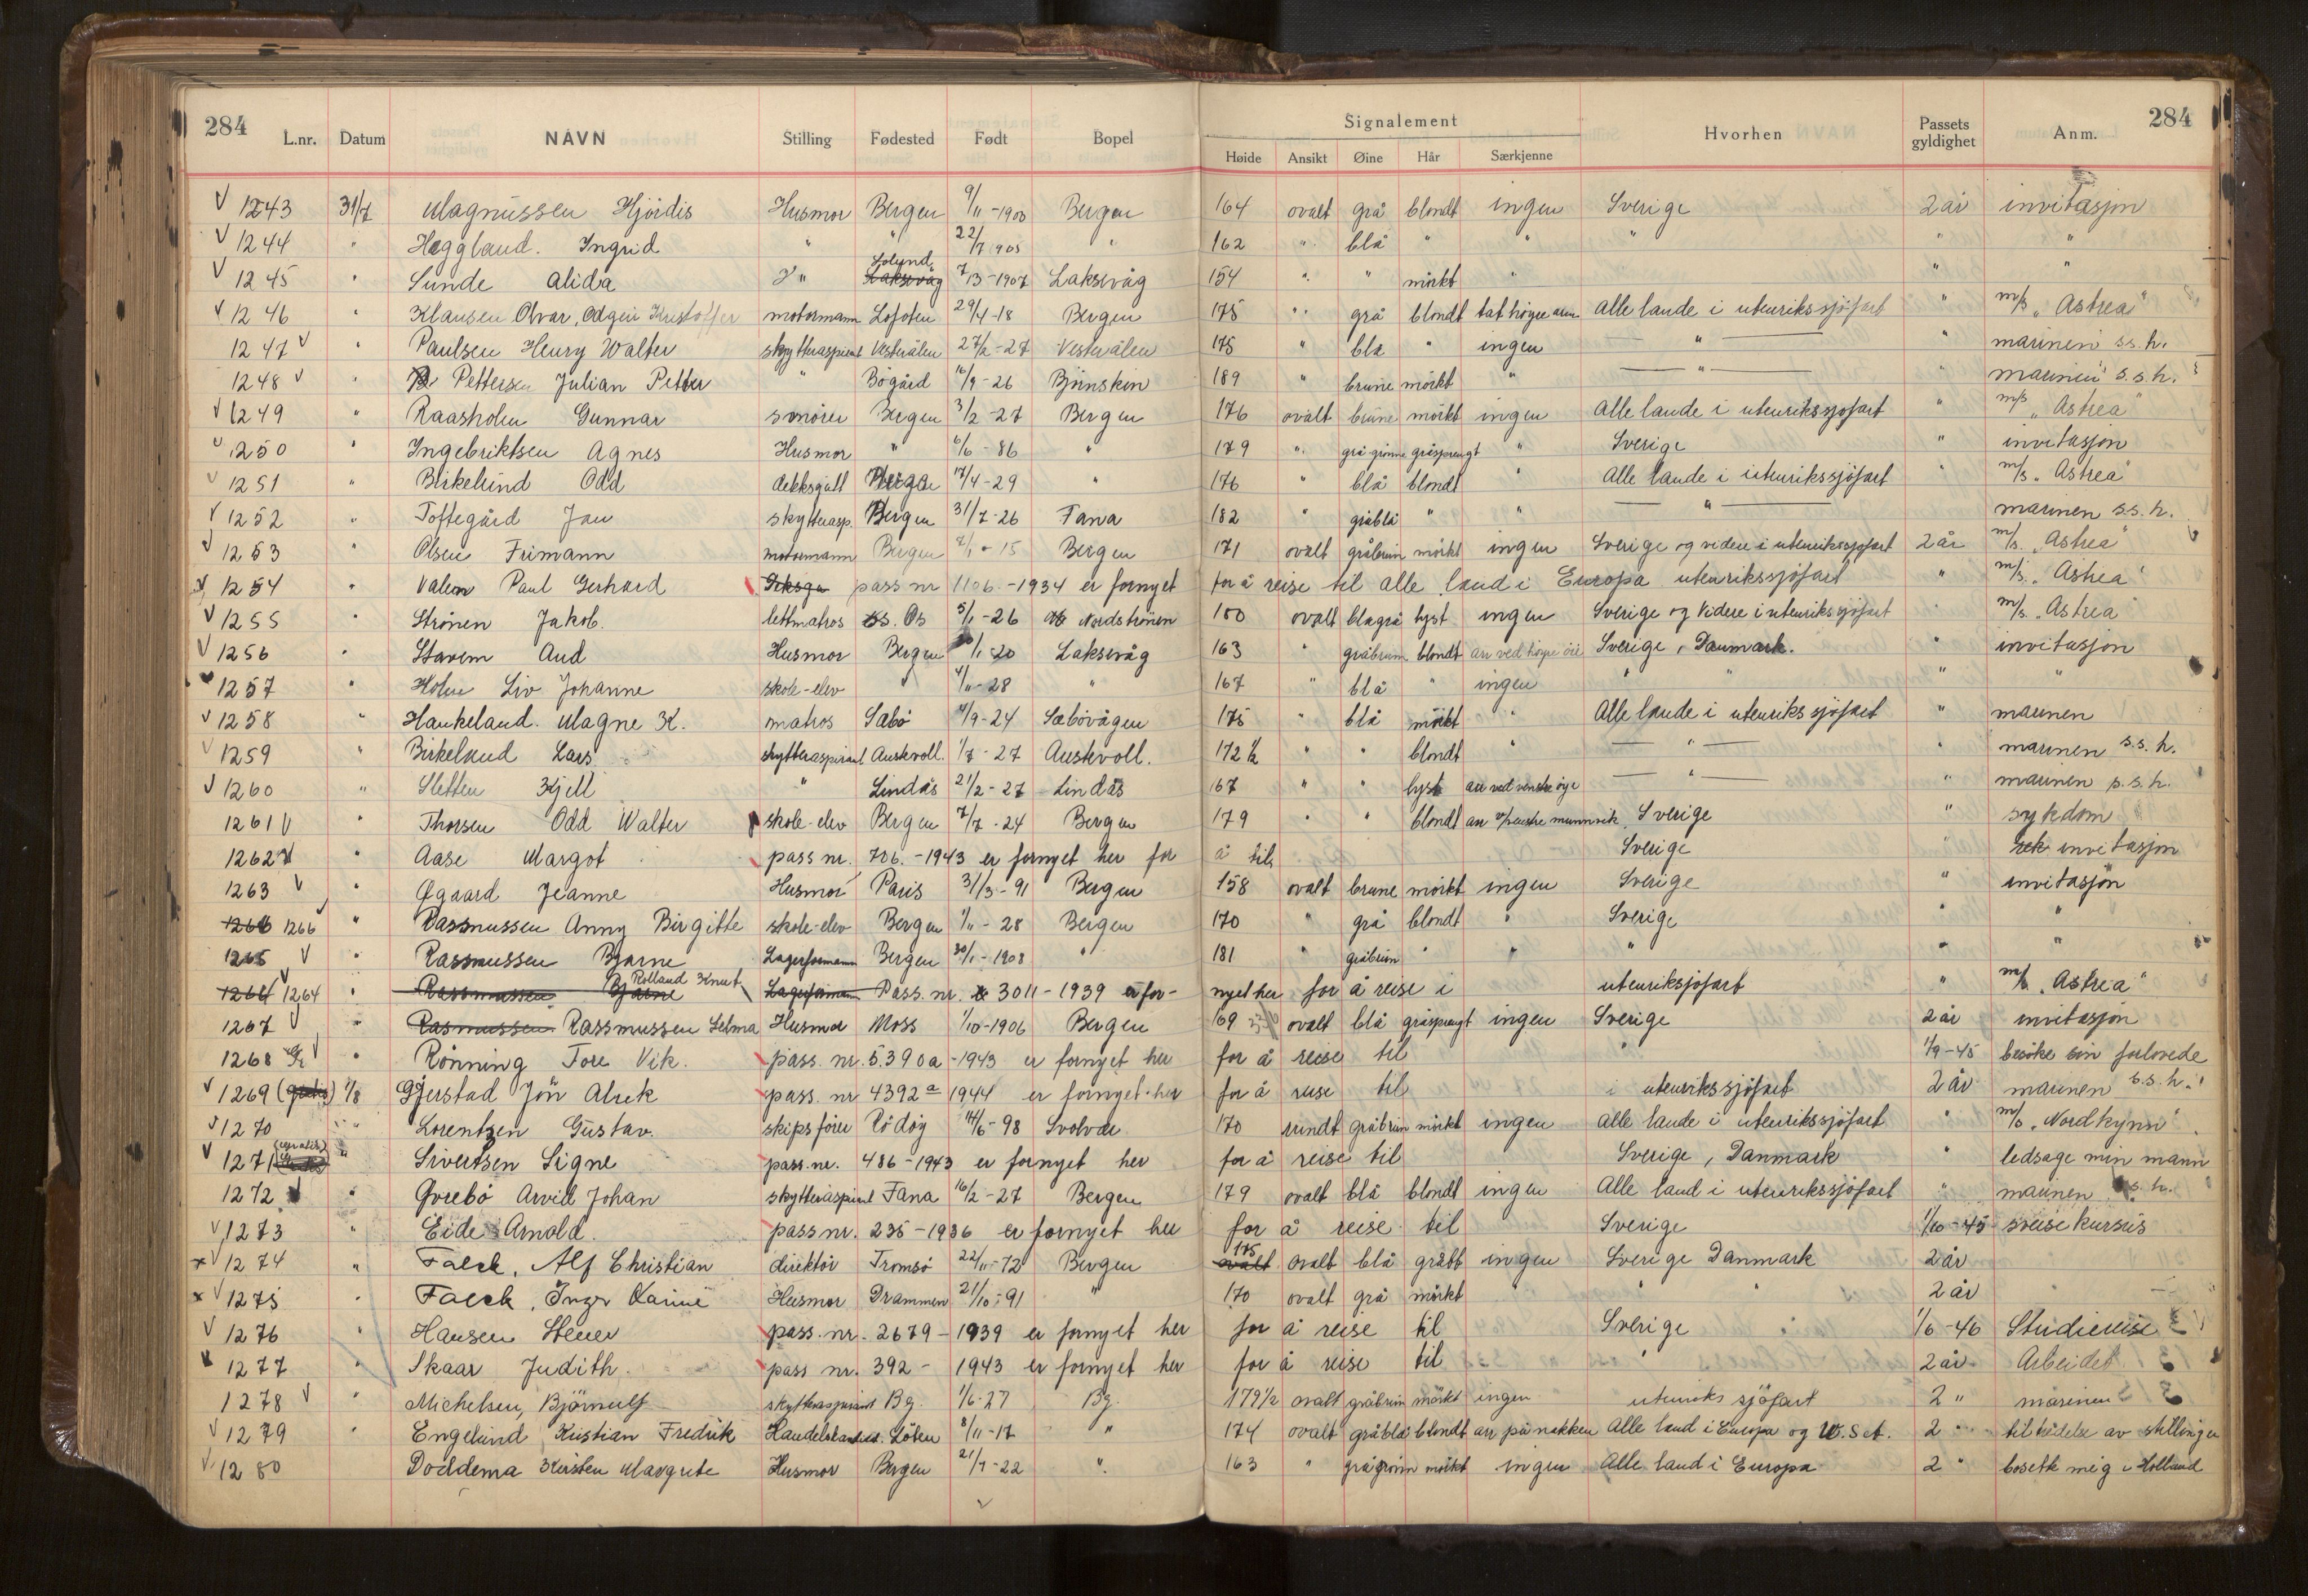 284 284
L.nr. Datum NAVN Stilling Fødested Født Bopel Signalement Hvorhen Passets gyldighet Anm.
Høide Ansikt Øine Hår Særkjenne
1243 31/7 Magnussen Hjördis Husmor Bergen 9/11-1900 Bergen 164 ovalt grå blondt ingen Sverige 2 år invitasjon
1244 " Heggland. Ingrid " " 22/7 1905 " 162 " blå " " " " "
1245 " Sunde Alida " Solund Laksevåg 7/3-1907 Laksevåg 154 " " mörkt " " "
1246 " Klausen Olvar, Odgeir Kristoffer motormann Lofoten 29/4-18 Bergen 175 " grå blondt tat högre arm Alle lande i utenrikssjöfart " m/s "Astrea"
1247 " Paulsen Henry Walter skytteraspirant Vesterålen 27/2-27 Vesterålen 175 " blå " ingen " " marinen s.s.h.
1248 " Pettersen Julian Petter " Bögård 16/9-26 Björnskin 189 " brune mörkt " " " marinen s.s.h.
1249 " Raasholm Gunnar smörer Bergen 3/2-27 Bergen 176 ovalt brune mörkt ingen Alle lande i utenrikssjöfart " m/s "Astrea"
1250 " Ingebriktsen Agnes Husmor " 6/6-86 " 179 " grågrönne gråsprengt " Sverige " invitasjon
1251 " Birkelund Odd dekksgutt Bergen 17/4-29 " 176 " blå blondt " Alle lande i utenrikssjöfart " m/s "Astrea"
1252 " Toftegård Jan skytterasp. Bergen 31/7-26 Fana 182 " gråblå " " " marinen s.s.h.
1253 " Olsen Frimann motormann Bergen 7/1-15 Bergen 171 ovalt gråbrun mörkt ingen Sverige og videre i utenrikssjöfart 2 år m/s. "Astrea"
1254 " Valen Paul Gerhard pass nr 1106.-1934 er fornyet for å reise til alle land i Europa utenrikssjöfart " m/s. "Astrea"
1255 " Strönen Jakob. lettmatros Os 5/1-26 Nordströnen 180 ovalt blågrå lyst ingen Sverige og videre i utenrikssjöfart " m/s. "Astrea"
1256 " Stavem Aud Husmor Bergen /1-20 Laksevåg 163 " gråbrun blondt arr ved höyre öie Sverige, Danmark. " invitasjon
1257 " Holm Liv Johanne skole-elev " 4/11-28 " 167 " blå " ingen " " " "
1258 " Haukeland. Magne K. matros Sæbö 4/9-24 Sæbövågen 175 " blå mörkt " Alle lande i utenriks sjöfart " marinen
1259 " Birkeland Lars skytteraspirant Austevoll. 1/7-27 Austevoll. 172 1/2 " " blondt " " " marinen s.s.h.
1260 " Sletten Kjell " Lindås 21/2-27 Lindås 167 " " lyst arr ved venstre öye " " marinen s.s.h.
1261 " Thorsen Odd Walter skole-elev Bergen 7/7-24 Bergen 179 " " blondt arr v/venstre munnvik Sverige " sykdom
1262 " Aase Margot pass nr. 706.-1943 er fornyet her for å til Sverige " invitasjon
1263 " Øgaard Jeanne Husmor Paris 31/3-91 Bergen 158 ovalt brune mörkt ingen Sverige " invitasjon
1266 " Rassmussen Anny Birgitte skole-elev Bergen 1/11-28 Bergen 170 " grå blondt " Sverige " "
1265 " Rassmussen Bjarne Lagerformann Bergen 30/1-1908 " 181 " gråbrun " " " " "
1264 " Rassmussen Bjarne Rolland Knut Lagerformann Pass. nr. 3011-1939 er for- nyet her for å reise i utenriksjöfart " m/s "Astrea"
1267 " Rasmussen Rassmussen Selma Husmor Moss 1/10-1906 Bergen 169 ovalt blå gråsprengt ingen Sverige 2 år invitasjon
1268 " Rönning Tore Vik. pass. nr. 5390a-1943 er fornyet her for å reise til " 1/9-45 besöke sin forlovede
1269 (gratis) 1/8 Gjerstad Jön Alrek pass. nr 4392a 1944 er fornyet her for å reise til i utenrikssjöfart 2 år marinen s.s.h.
1270 " Lorentzen Gustav. skipsförer Rödöy 14/6-98 Svolvær 170 rundt gråbrun mörkt ingen Alle lande i utenrikssjöfart " m/s "Nordkyn"
1271 " Sivertsen Signe pass. nr. 486-1943 er fornyet her for å reise til Sverige, Danmark " ledsage min mann
1272 " Øvrebö Arvid Johan skytteraspirant Fana 16/2-27 Bergen 179 ovalt blå blondt ingen Alle land i utenrikssjöfart " marinen s.s.h.
1273 " Eide Arnold. pass nr. 235-1936 er fornyet her for å reise til Sverige 1/10-45 sveisekursus
1274 " Falck, Alf Christian direktör Tromsö 22/11-72 Bergen 175 ovalt blå grått ingen Sverige Danmark 2 år
1275 " Falck, Inger Karine Husmor Drammen 21/10-91 " 170 ovalt grå mörkt " " " 2 år
1276 " Hansen Stener pass. nr. 2679-1939 er fornyet her for å reise til Sverige 1/6-46 Studiereise
1277 " Skaar Judith. pass nr. 392-1943 er fornyet her for å reise til " 2 år Arbeidet
1278 " Michelsen, Björnulf skytteraspirant Bg. 1/6-27 Bg. 179 1/2 ovalt gråbrun mörkt ingen utenriks sjöfart 2 " marinen
1279 " Engelund Kristian Fredrik Löten 8/11-17 " 174 ovalt gråblå blondt arr på nakken Alle land i Europa og U.S.A. 2 " tiltredelse av stillingen
1280 Doddema Kirsten Margrete Husmor Bergen 21/7-22 " 163 " grågrönn mörkt ingen Alle land i Europa 2 " bosette meg i Holland